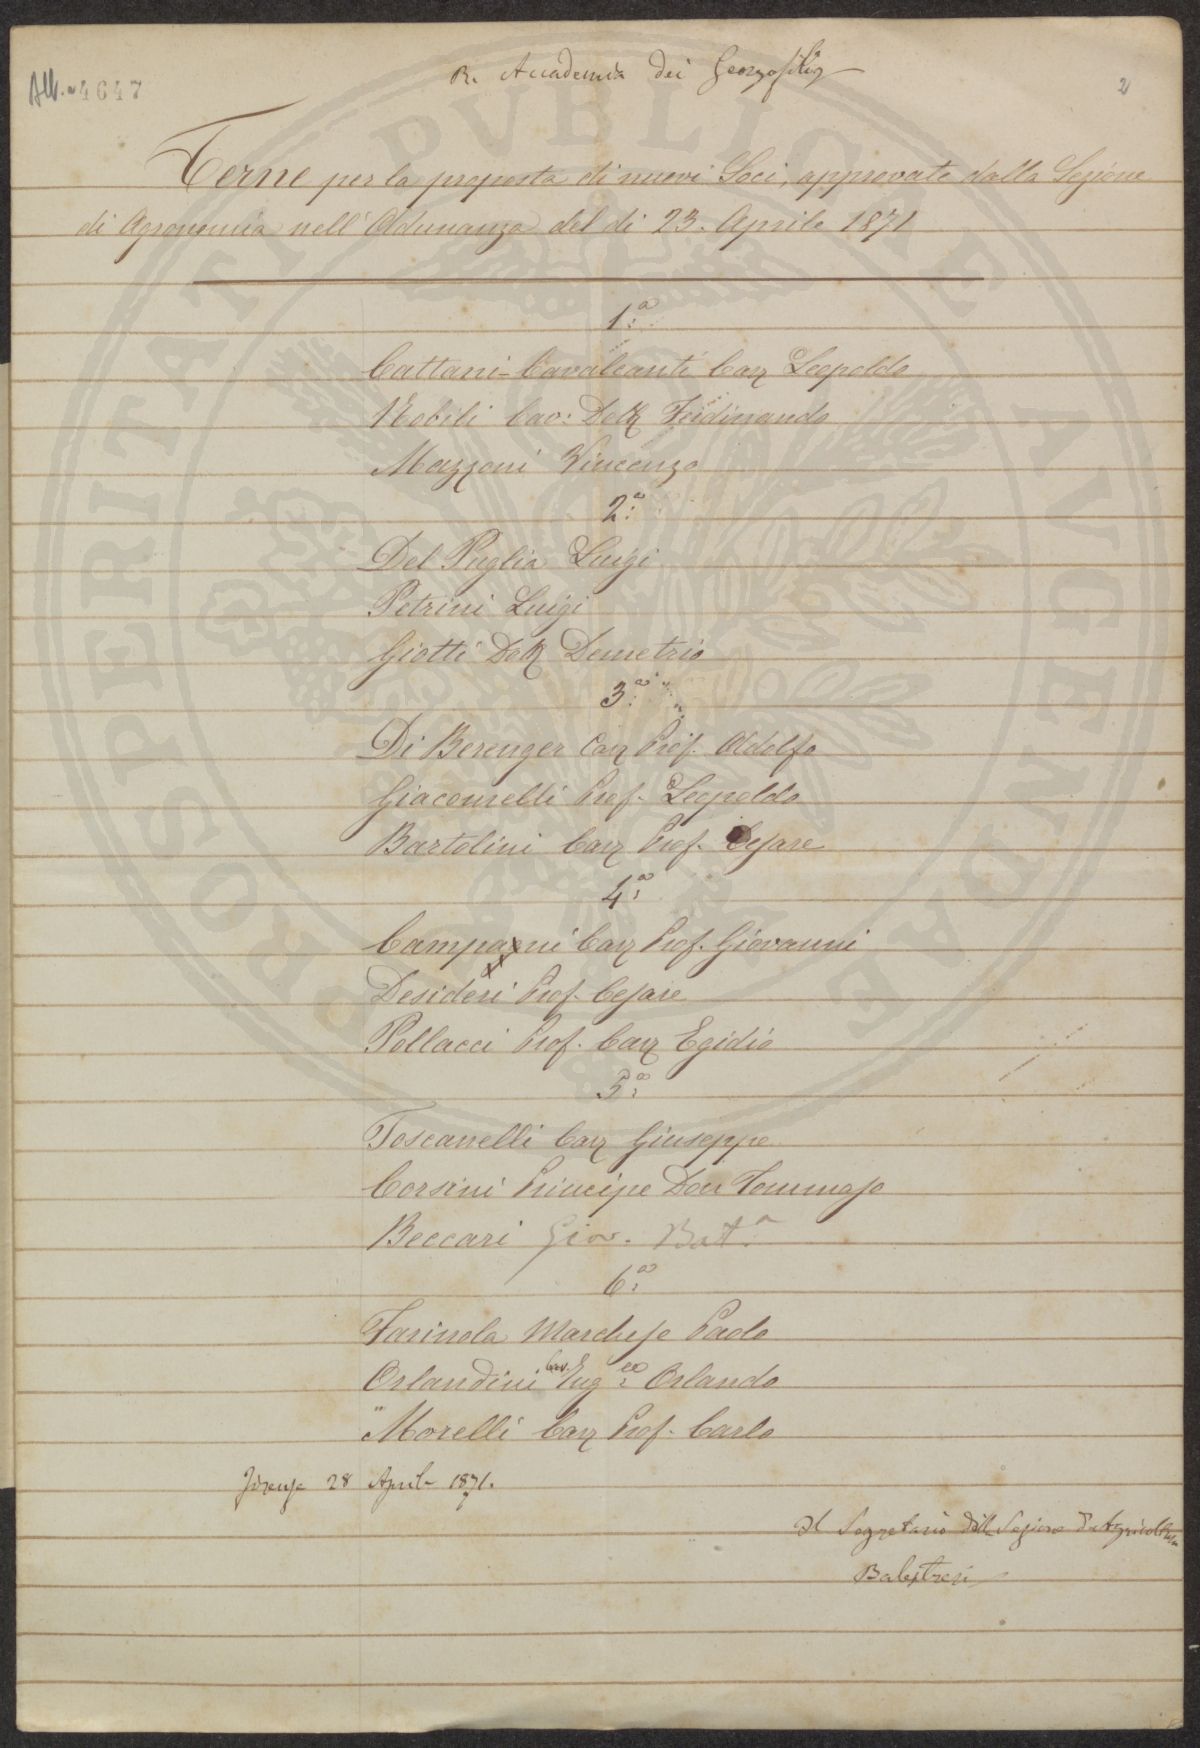 All. 4647
R. Accademia dei Georgofili
2
Terne per la proposta di nuovi Soci, approvate dalla Sezione
di Agronomia nell'Adunanza del dì 23. Aprile 1871
1.a
Cattani-Cavalcanti Cav Leopoldo
Nobili Cav: Dott Ferdinando
Mazzoni Vincenzo
2.a
Del Puglia Luigi
Petrini Luigi
Giotti Dott Demetrio
3.a
Di Berenger Cav Prof. Adolfo
Giacomelli Prof. Leopoldo
Bartolini Cav Prof. Cesare
4.a
Campani Cav Prof. Giovanni
Desideri Prof. Cesare
Pollacci Prof. Cav Egidio
5.a
Toscanelli Cav Giuseppe
Corsini Principe Don Tommaso
Beccari Giov. Bat.a
6.a
Farinola Marchese Paolo
Orlandini Cav. Ing.re Orlando
"Morelli Cav Prof. Carlo
Firenze 28 Aprile 1871.
Il Segretario della Sezione d'Agricoltura
Balestreri
PROSPERITATI PVBLICAE AVGENDAE